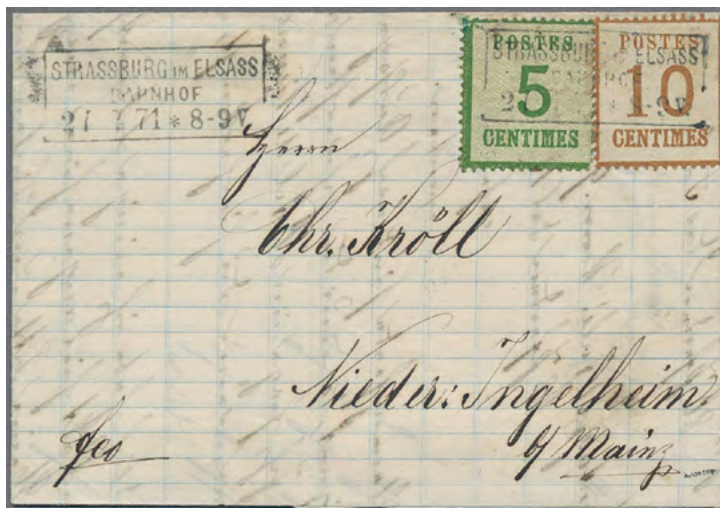 STRASSBURG IM ELSASS
BAHNHOF
27 71 * 8-9 V
POSTES
5
CENTIMES
POSTES
10
CENTIMES
STRASSBURG ELSASS
8-9V
Herrn
Chr. Kröll
Nieder: Ingelheim
b/ Mainz
fco